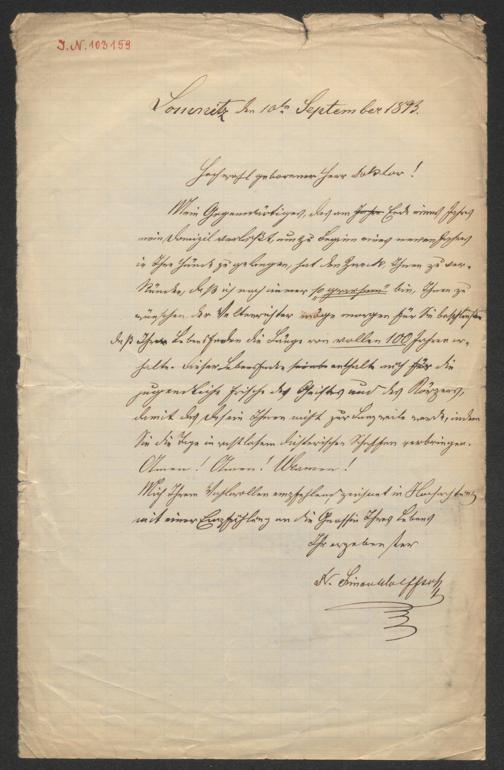 I.N. 103159
Lomnitz den 10ten September 1893.
Hochwohlgeborener Herr Doktor!
Mein Gegenwärtiges, das am Ende eines Jahres
mein Domizil verläßt, um zu Beginn eines neuen Jahres
in Ihre Hände zu gelangen, hat den Zweck, Ihnen zu ver-
künden, daß ich noch immer so bin, Ihnen zu
wünschen, der Weltenrichter möge morgen für Sie beschließen
daß Ihr Lebensfaden die Länge von vollen 100 Jahren er-
halte. Dieser Lebensfaden enthalte auch für die
jugendliche Frische des Geistes und des Körpers,
damit das Dasein Ihnen nicht zur Langweile werde, indem
Sie die Tage in rastlosem Schaffen verbringen.
Amen! Amen! Amen!
Mich Ihrem Wohlwollen empfehlend, zeichnet in Hochachtung
mit einer Empfehlung an die Genossin Ihres Lebens
Ihr ergebenster